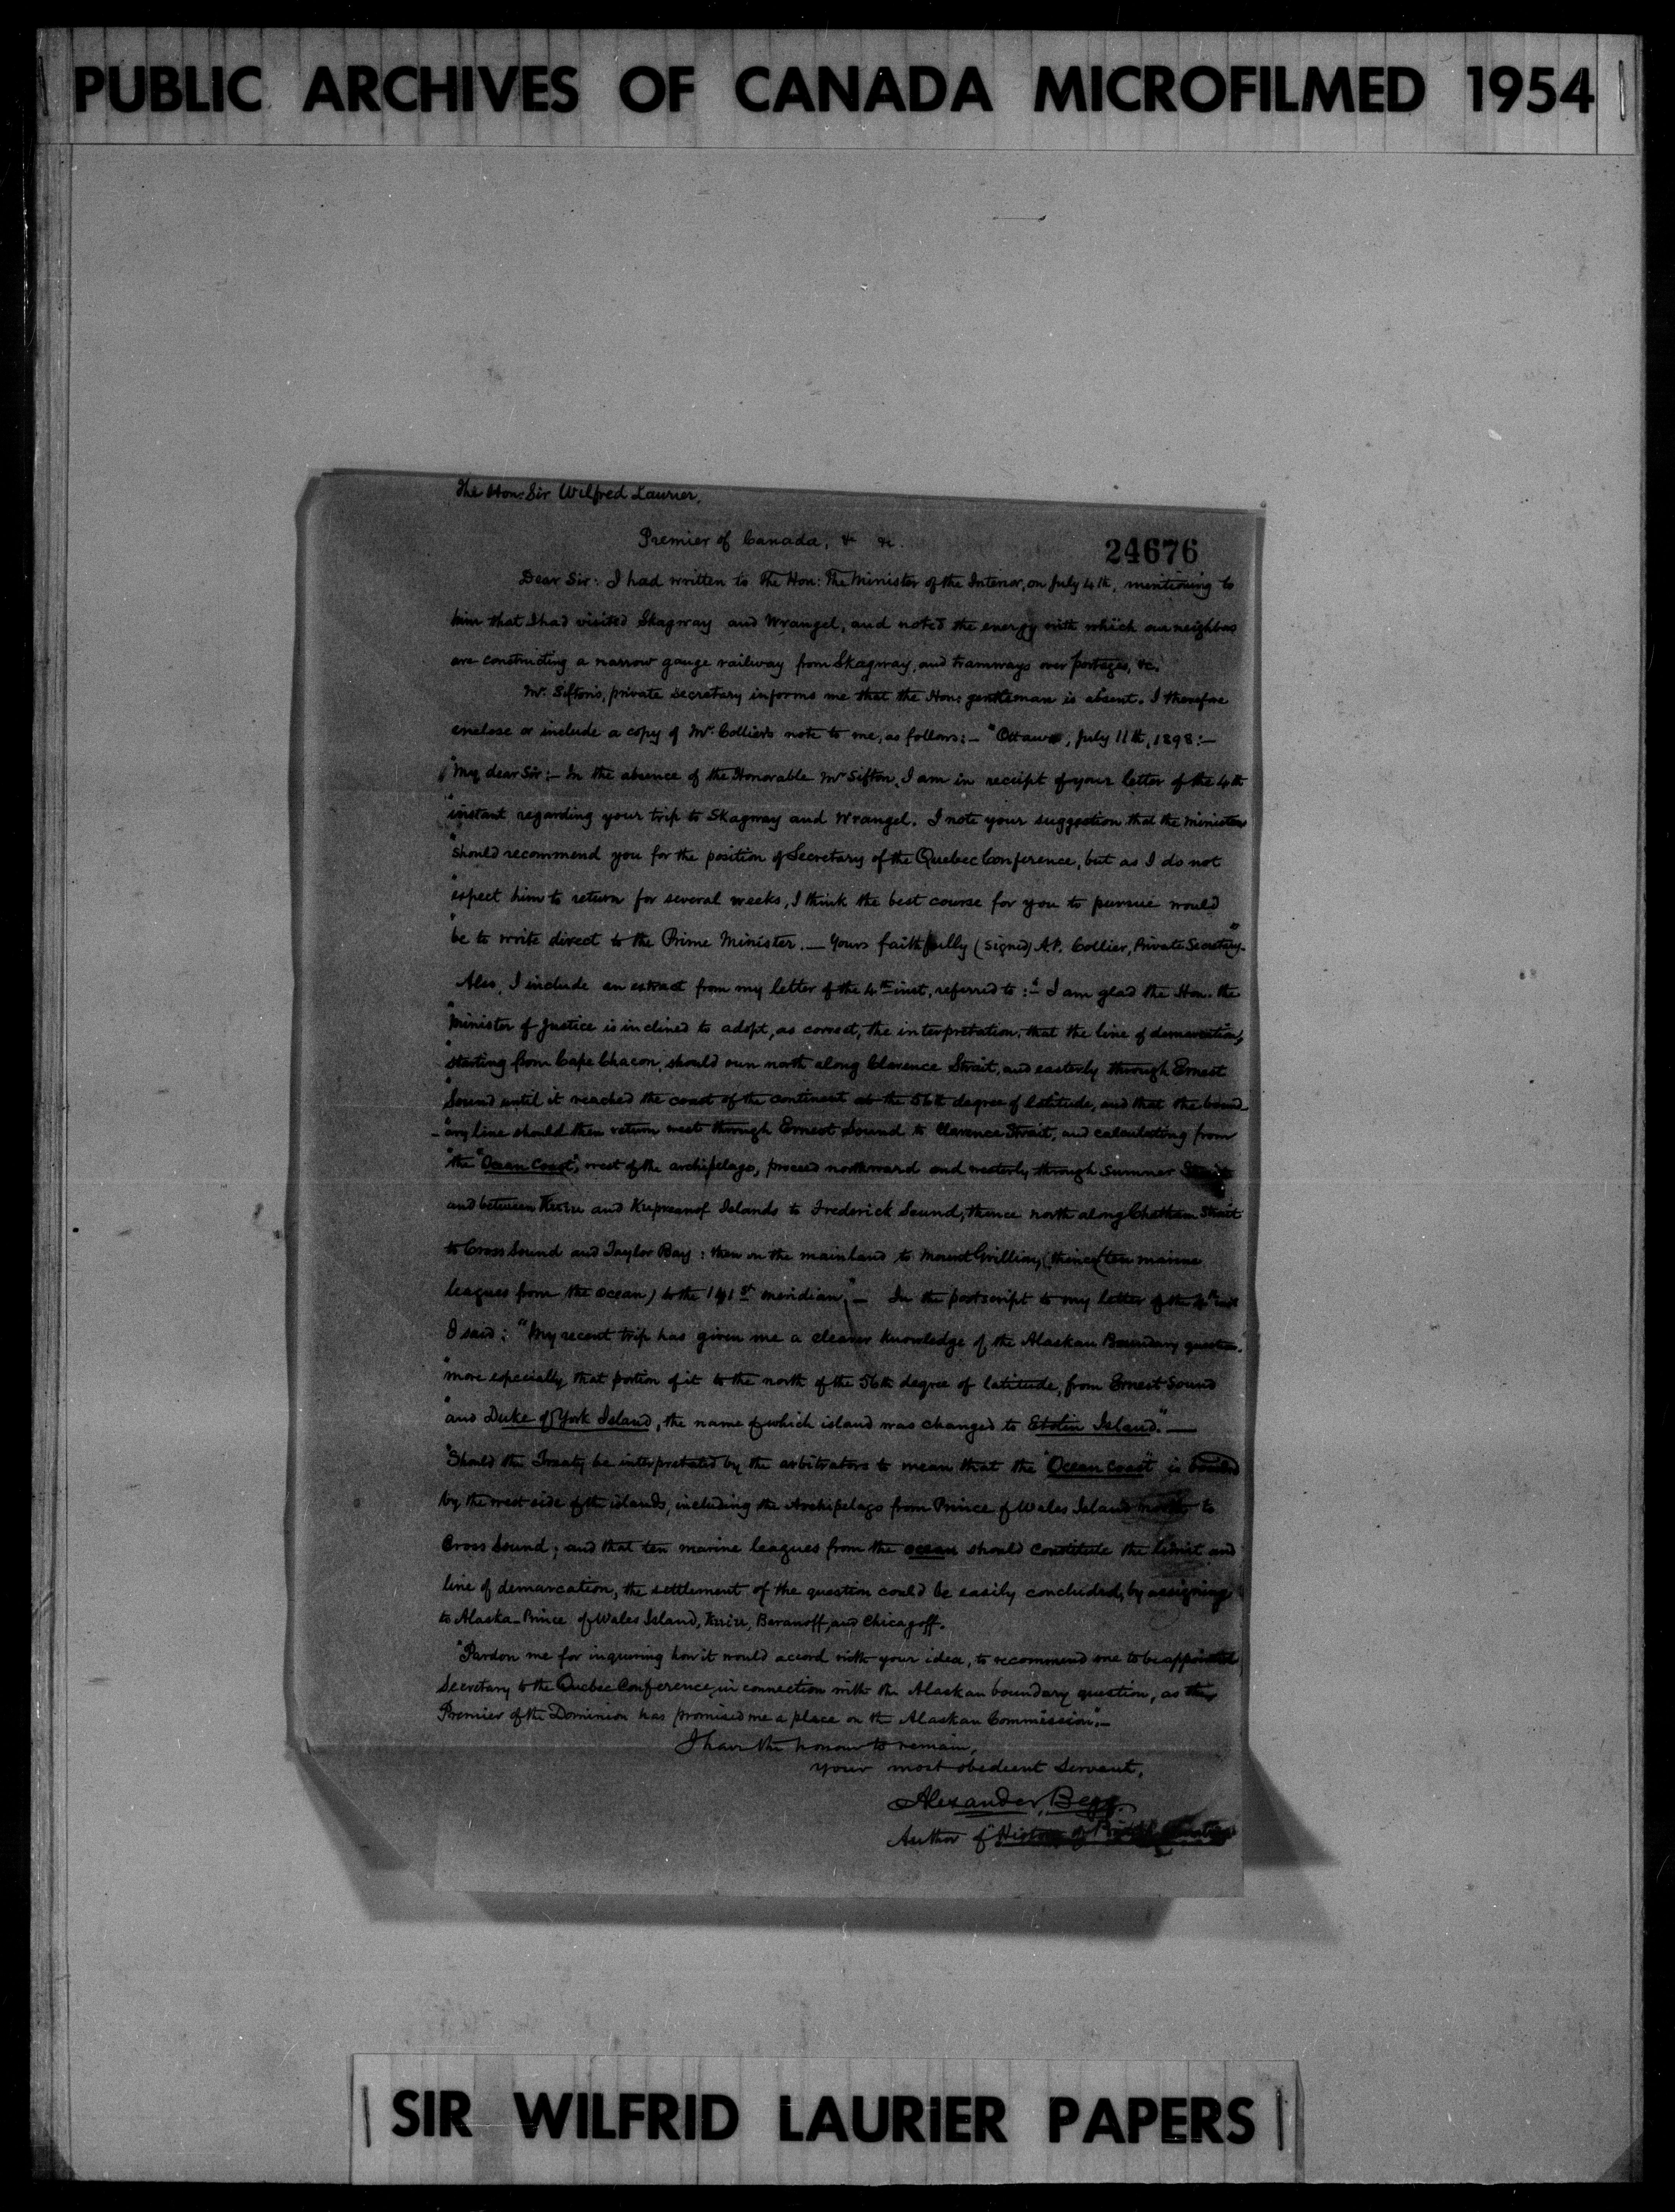 PUBLIC ARCHIVES OF CANADA MICROFILMED 1954
The Hon: Sir Wilfred Laurier,
Premier of Canada, &c &c.
24676
Dear Sir: I had written to The Hon: The Minister of the Interior, on July 4th, mentioning to
him that I had visited Skagway and Wrangel, and noted the energy with which our neighbors
are constructing a narrow gauge railway from Skagway, and tramways over portages, &c.
Mr. Sifton's, private secretary informs me that the Hon: gentleman is absent. I therefore
enclose or include a copy of Mr. Collier's note to me, as follows: — "Ottawa, July 11th, 1898: —
"My dear Sir: — In the absence of the Honorable Mr Sifton, I am in receipt of your letter of the 4th
"instant regarding your trip to Skagway and Wrangel. I note your suggestion that the minister
"should recommend you for the position of Secretary of the Quebec Conference, but as I do not
"expect him to return for several weeks, I think the best course for you to pursue would
"be to write direct to the Prime Minister. — Yours faithfully (signed) A.P. Collier, Private Secretary."
Also, I include an extract from my letter of the 4th inst, referred to: "— I am glad the Hon. the
"Minister of Justice is inclined to adopt, as correct, the interpretation, that the line of demarcation,
"starting from Cape Chacon, should run north along Clarence Strait, and easterly through Ernest
"Sound until it reached the coast of the continent at the 56th degree of latitude, and that the bound-
-"ary line should then return west through Ernest Sound to Clarence Strait, and calculating from
"the "Ocean Coast", west of the archipelago, proceed northward and westerly through Sumner
and between Kuiu and Kupreanof Islands to Frederick Sound, thence north along Chatham Strait
to Cross Sound and Taylor Bay: then on the mainland to Mount Crillion, (thence ten marine
leagues from the ocean) to the 141st meridian," — In the postscript to my letter of the 4th inst
I said: "My recent trip has given me a clearer knowledge of the Alaskan Boundary question.
"more especially that portion of it to the north of the 56th degree of latitude, from Ernest Sound
"and Duke of York Island, the name of which island was changed to Etolin Island." —
"Should the Treaty be interpretated by the arbitrators to mean that the "Ocean Coast" is
by the west side of the islands, including the Archipelago from Prince of Wales Island north to
Cross Sound; and that ten marine leagues from the ocean should constitute the limit and
line of demarcation, the settlement of the question could be easily concluded, by assigning
to Alaska — Prince of Wales Island, Kuiu, Baranoff, and Chicagoff.
"Pardon me for inquiring how it would accord with your idea, to recommend me to be appointed
Secretary to the Quebec Conference, in connection with the Alaskan boundary question, as the
Premier of the Dominion has promised me a place on the Alaskan Commission". —
I have the honour to remain,
your most obedient Servant,
Alexander Begg.
Author of "History of British
SIR WILFRID LAURIER PAPERS